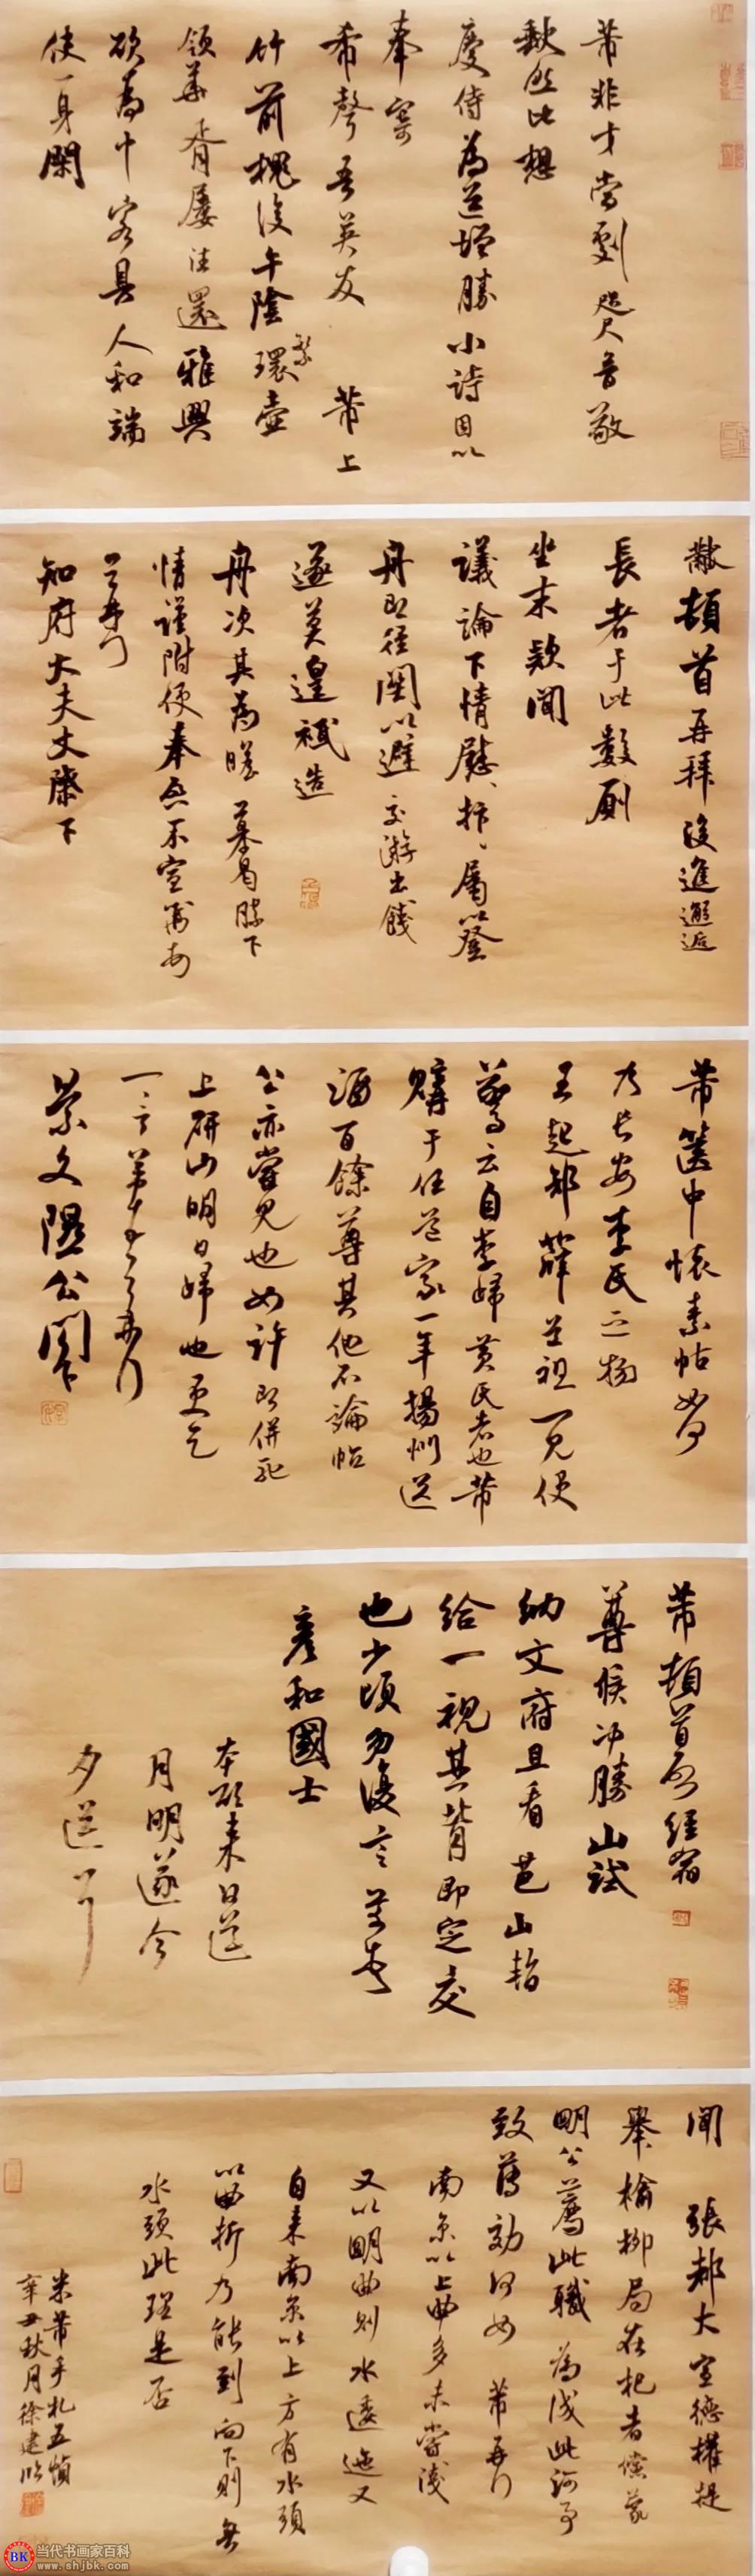 芾非才當劇咫尺音敬
缺然比想
慶侍為道增勝小詩因以
奉寄
希聲吾英友 芾上
竹前槐後午陰繁環壺
領華胥屢往還雅興
欲為十客具人和端
使一身閑
黻頓首再拜後進邂逅
長者于此數厠
坐末款聞
議論下情慰忭、屬以登
舟即徑關以避交游出餞
遂莫遑祗造
舟次其為瞻慕曷勝下
情謹附便奉啟不宣黻
知府大夫丈棨下
芾篋中懷素帖如何
乃長安李氏之物
王起部薛道祖一見便
驚云自李歸黃氏者也芾
購于任道家一年揚州送
酒百餘尊其他不論帖
公亦嘗見也如許即併馳
上研山明日歸也更乞
一言芾頓首再拜
景文隰公閣下
芾頓首啟經宿
尊候沖勝山試
納文府且看芭山暫
給一視其背即定交
也少頃勿復言芾頓首
彥和國士
本欲來日送
月明遂今
夕送耳
聞 張都大宣德權提
舉榆柳局在杞者儻蒙
明公薦此職為成此河事
致薄效何如 芾再拜
南京以上曲多未嘗淺
又以明曲則水逶迤又
自來南京以上方有水頭
以曲折乃能到向下則無
水頭此理是否
米芾手札五幀
辛丑秋月徐建臨
BK 当代书画家百科
www.shjbk.com